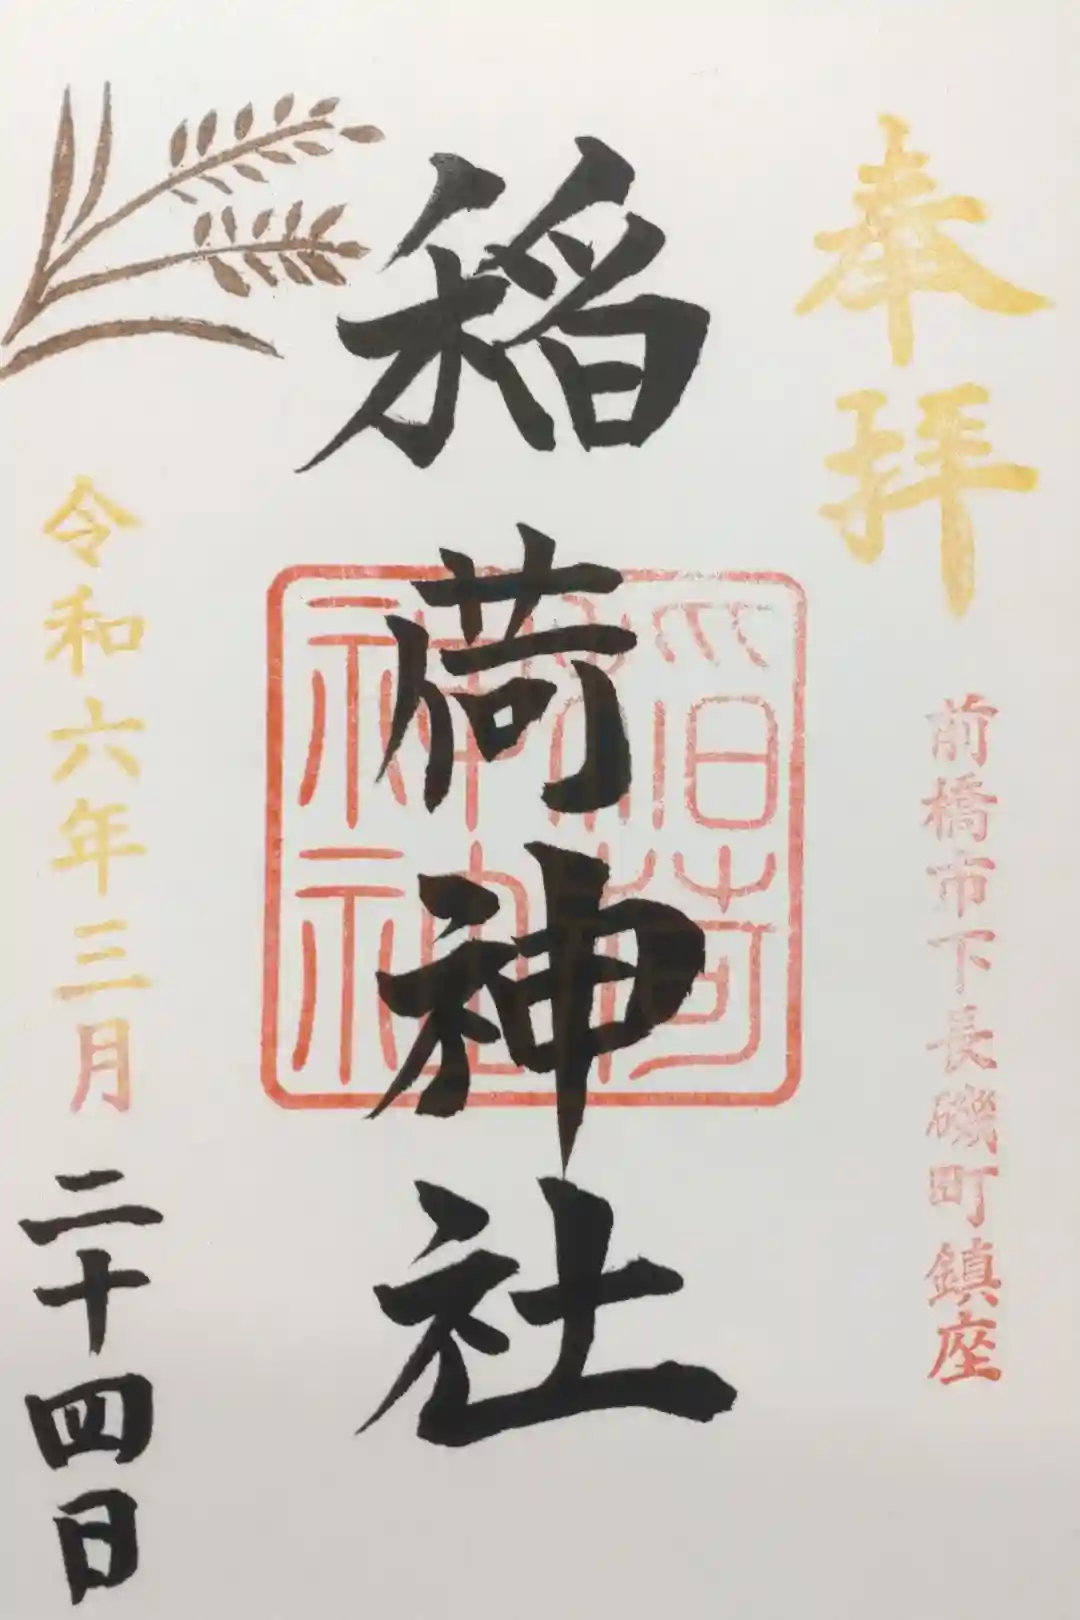 奉拝
前橋市下長磯町鎮座
稲荷神社
稲荷
神社
令和六年三月二十四日